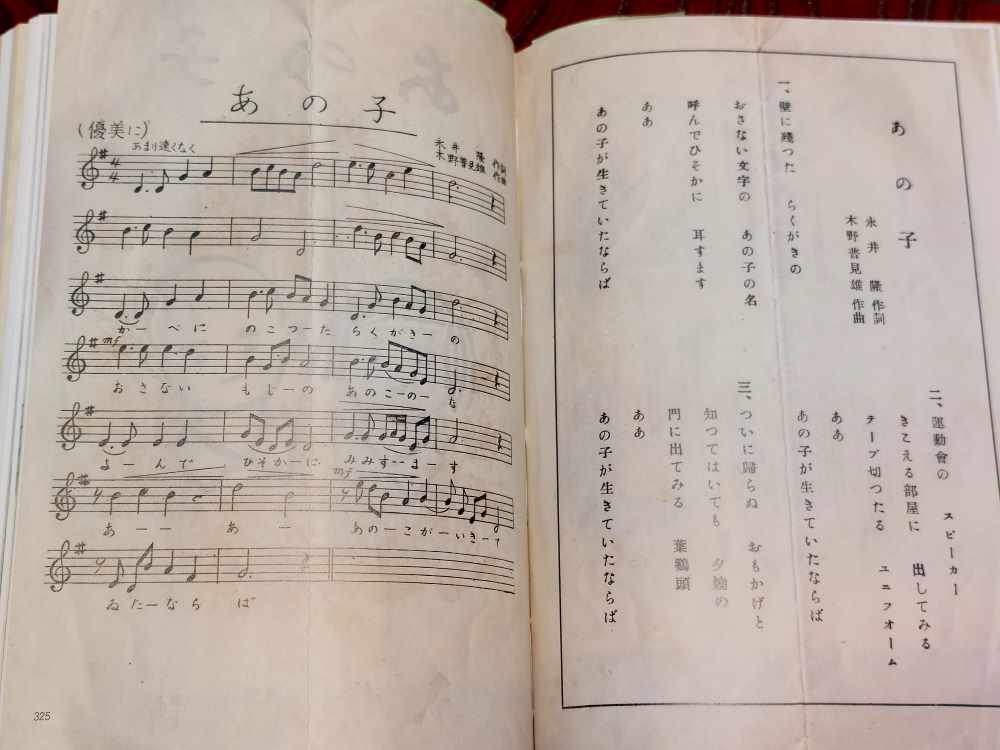 あの子
(優美に)
あまり速くなく
永井 隆 作詞
木野普見雄 作曲
かーべに のこつーた らくがきーの
mf
おさない もじーの あのこーのーな
よーんで ひそかーに みみすーまーす
mf
あーー あー あのーこがーいきーて
ゐたーなら ば
325
あの子
永井 隆 作詞
木野普見雄 作曲
一、壁に殘つた らくがきの
おさない文字の あの子の名
呼んでひそかに 耳すます
ああ
あの子が生きていたならば
二、運動會の スピーカー
きこえる部屋に 出してみる
テープ切つたる ユニフォーム
ああ
あの子が生きていたならば
三、ついに歸らぬ おもかげと
知つてはいても 夕燒の
門に出てみる 葉鷄頭
ああ
あの子が生きていたならば